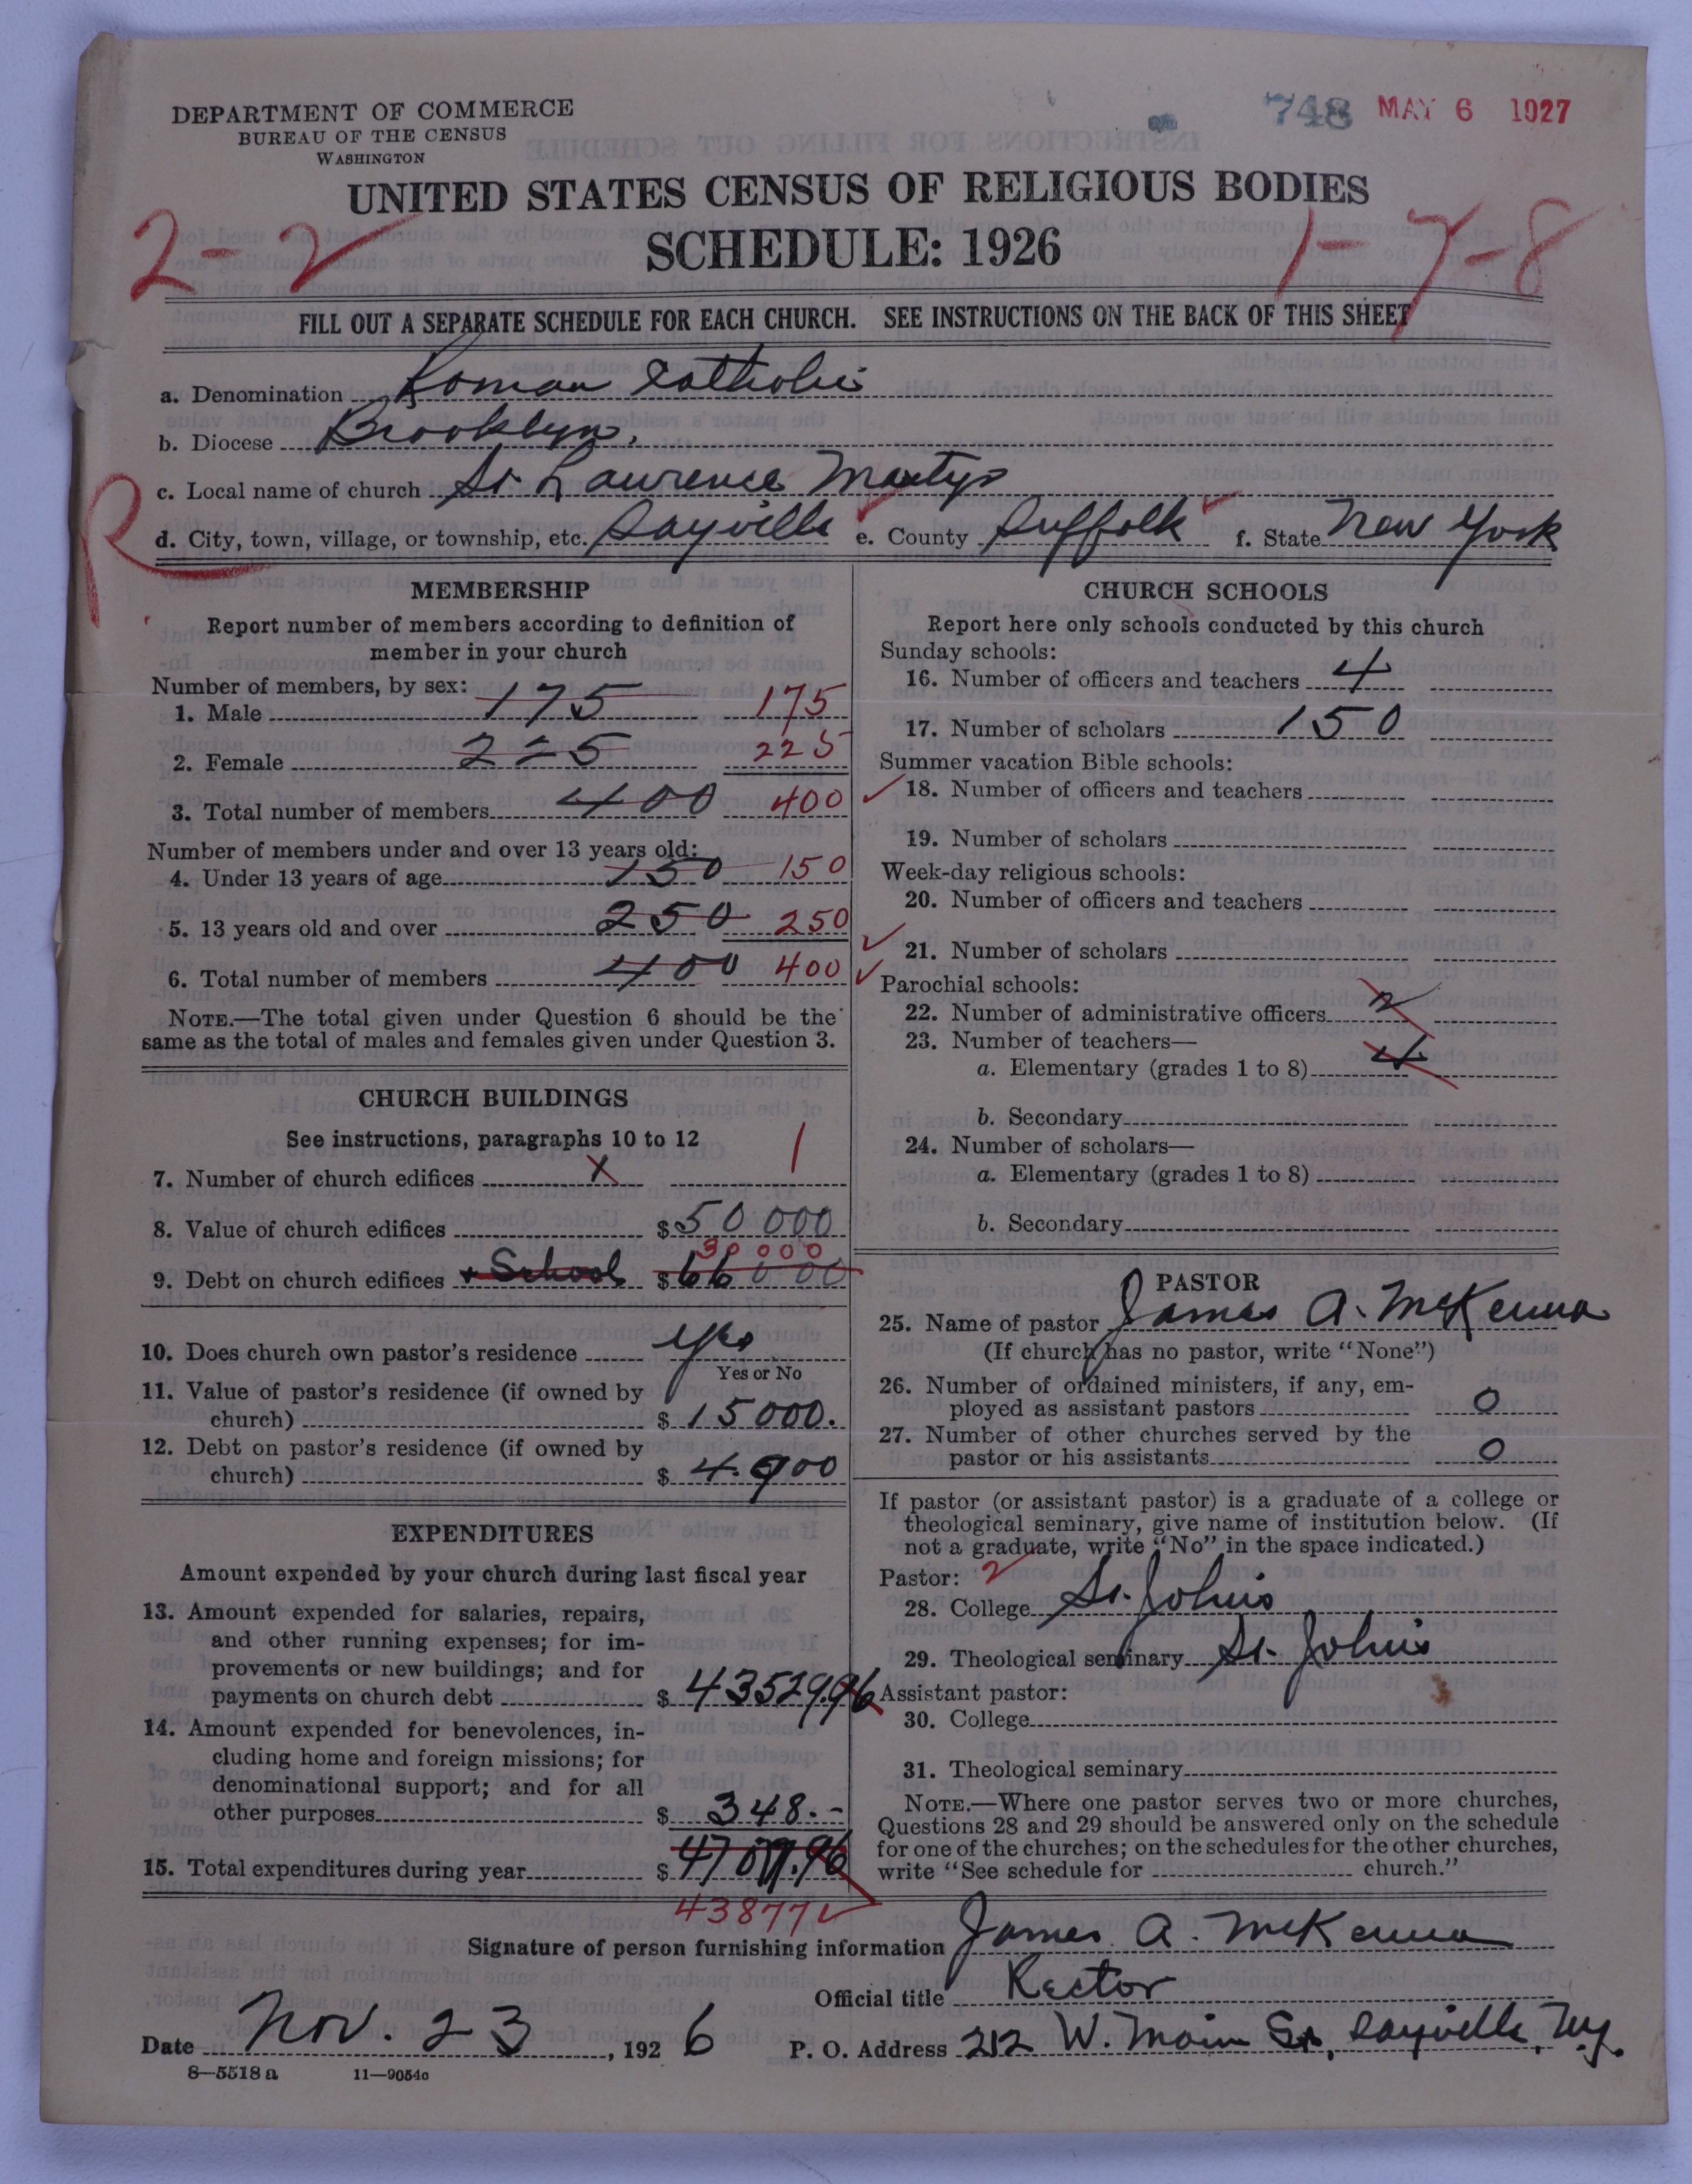 DEPARTMENT OF COMMERCE
BUREAU OF THE CENSUS
WASHINGTON
748 MAY 6 1927
UNITED STATES CENSUS OF RELIGIOUS BODIES
SCHEDULE: 1926
2-2 1-7-8
FILL OUT A SEPARATE SCHEDULE FOR EACH CHURCH. SEE INSTRUCTIONS ON THE BACK OF THIS SHEET
a. Denomination Roman Catholic
b. Diocese Brooklyn.
R
c. Local name of church St. Lawrence Martyr
d. City, town, village, or township, etc. Sayville e. County Suffolk f. State New York
MEMBERSHIP
Report number of members according to definition of
member in your church
Number of members, by sex:
1. Male 175 175
2. Female 225 225
3. Total number of members 400 400
Number of members under and over 13 years old:
4. Under 13 years of age 150 150
5. 13 years old and over 250 250
6. Total number of members 400 400
NOTE.—The total given under Question 6 should be the
same as the total of males and females given under Question 3.
CHURCH BUILDINGS
See instructions, paragraphs 10 to 12
7. Number of church edifices X 1
8. Value of church edifices $50 000
30000
9. Debt on church edifices + School $66 000
10. Does church own pastor's residence yes
Yes or No
11. Value of pastor's residence (if owned by
church) $ 15000.
12. Debt on pastor's residence (if owned by
church) $ 4.900
EXPENDITURES
Amount expended by your church during last fiscal year
13. Amount expended for salaries, repairs,
and other running expenses; for im-
provements or new buildings; and for
payments on church debt $ 43529.96
14. Amount expended for benevolences, in-
cluding home and foreign missions; for
denominational support; and for all
other purposes $ 348.-
15. Total expenditures during year $
43877
CHURCH SCHOOLS
Report here only schools conducted by this church
Sunday schools:
16. Number of officers and teachers 4
17. Number of scholars 150
Summer vacation Bible schools:
18. Number of officers and teachers
19. Number of scholars
Week-day religious schools:
20. Number of officers and teachers
21. Number of scholars
Parochial schools:
22. Number of administrative officers 2
23. Number of teachers—
a. Elementary (grades 1 to 8) 4
b. Secondary
24. Number of scholars—
a. Elementary (grades 1 to 8)
b. Secondary
PASTOR
25. Name of pastor James A. McKenna
(If church has no pastor, write "None")
26. Number of ordained ministers, if any, em-
ployed as assistant pastors 0
27. Number of other churches served by the
pastor or his assistants 0
If pastor (or assistant pastor) is a graduate of a college or
theological seminary, give name of institution below. (If
not a graduate, write "No" in the space indicated.)
Pastor: 2
28. College St. Johns
29. Theological seminary St. Johns
Assistant pastor:
30. College
31. Theological seminary
NOTE.—Where one pastor serves two or more churches,
Questions 28 and 29 should be answered only on the schedule
for one of the churches; on the schedules for the other churches,
write "See schedule for church."
Signature of person furnishing information James A. McKenna
Official title Rector
Date Nov. 23, 1926 P. O. Address 212 W. Main St., Sayville, N.Y.
8—5518 a 11—9054c